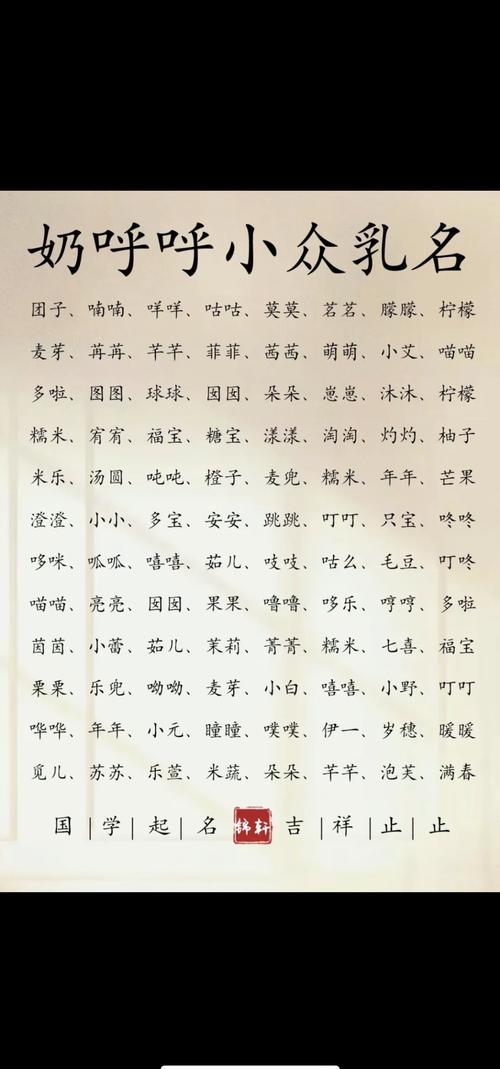 奶呼呼小众乳名
团子、喃喃、咩咩、咕咕、莫莫、茗茗、朦朦、柠檬
麦芽、苒苒、芊芊、菲菲、茜茜、萌萌、小艾、喵喵
多啦、图图、球球、囡囡、朵朵、崽崽、沐沐、柠檬
糯米、宥宥、福宝、糖宝、漾漾、淘淘、灼灼、柚子
米乐、汤圆、吨吨、橙子、麦兜、糯米、年年、芒果
澄澄、小小、多宝、安安、跳跳、叮叮、只宝、咚咚
哆咪、呱呱、嘻嘻、茹儿、吱吱、咕么、毛豆、叮咚
喵喵、亮亮、囡囡、果果、噜噜、哆乐、哼哼、多啦
茵茵、小蕾、茹儿、茉莉、菁菁、糯米、七喜、福宝
栗栗、乐兜、呦呦、麦芽、小白、嘻嘻、小野、叮叮
哗哗、年年、小元、瞳瞳、噗噗、伊一、岁穗、暖暖
觅儿、苏苏、乐萱、米蔬、朵朵、芊芊、泡芙、满春
国|学|起|名 锦轩 吉|祥|止|止